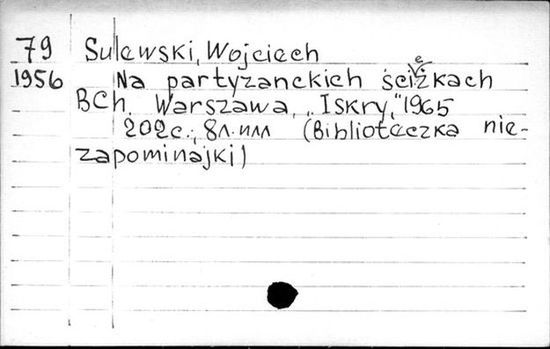 79 Sulewski, Wojciech
1956 Na partyzanckich ścieżkach
BCh. Warszawa, „Iskry," 1965
202с., 8л. илл (Biblioteczka nie-
zapominajki)